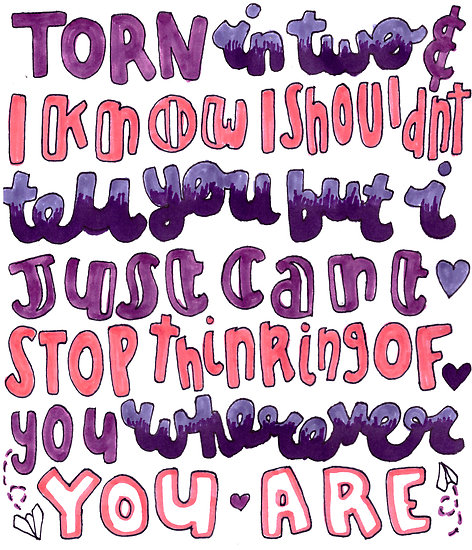 TORN in two &
I know I shouldnt
tell you but i
Just cant
STOP thinking OF
you wherever
YOU ARE